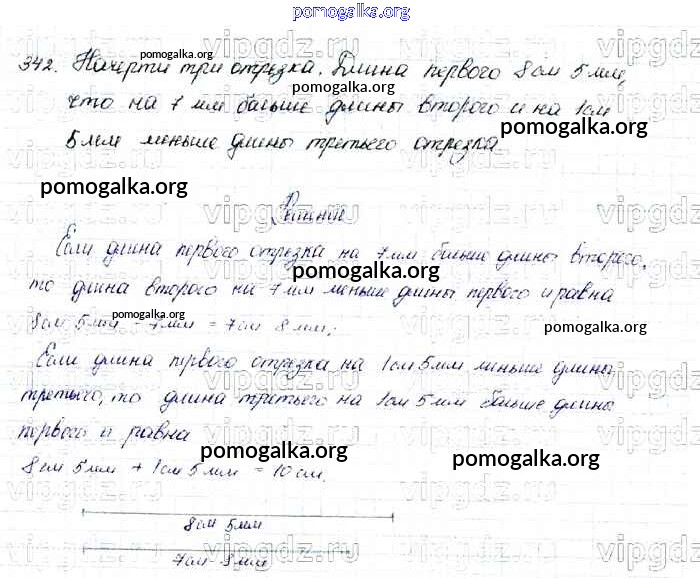 pomogalka.org
342. Начерти три отрезка. Длина первого 8 см 5 мм,
что на 7 мм больше длины второго и на 1 см
5 мм меньше длины третьего отрезка.
Решение
Если длина первого отрезка на 7 мм больше длины второго,
то длина второго на 7 мм меньше длины первого и равна
8 см 5 мм - 7 мм = 7 см 8 мм;
Если длина первого отрезка на 1 см 5 мм меньше длины
третьего, то длина третьего на 1 см 5 мм больше длины
первого и равна
8 см 5 мм + 1 см 5 мм = 10 см.
8 см 5 мм
7 см 8 мм